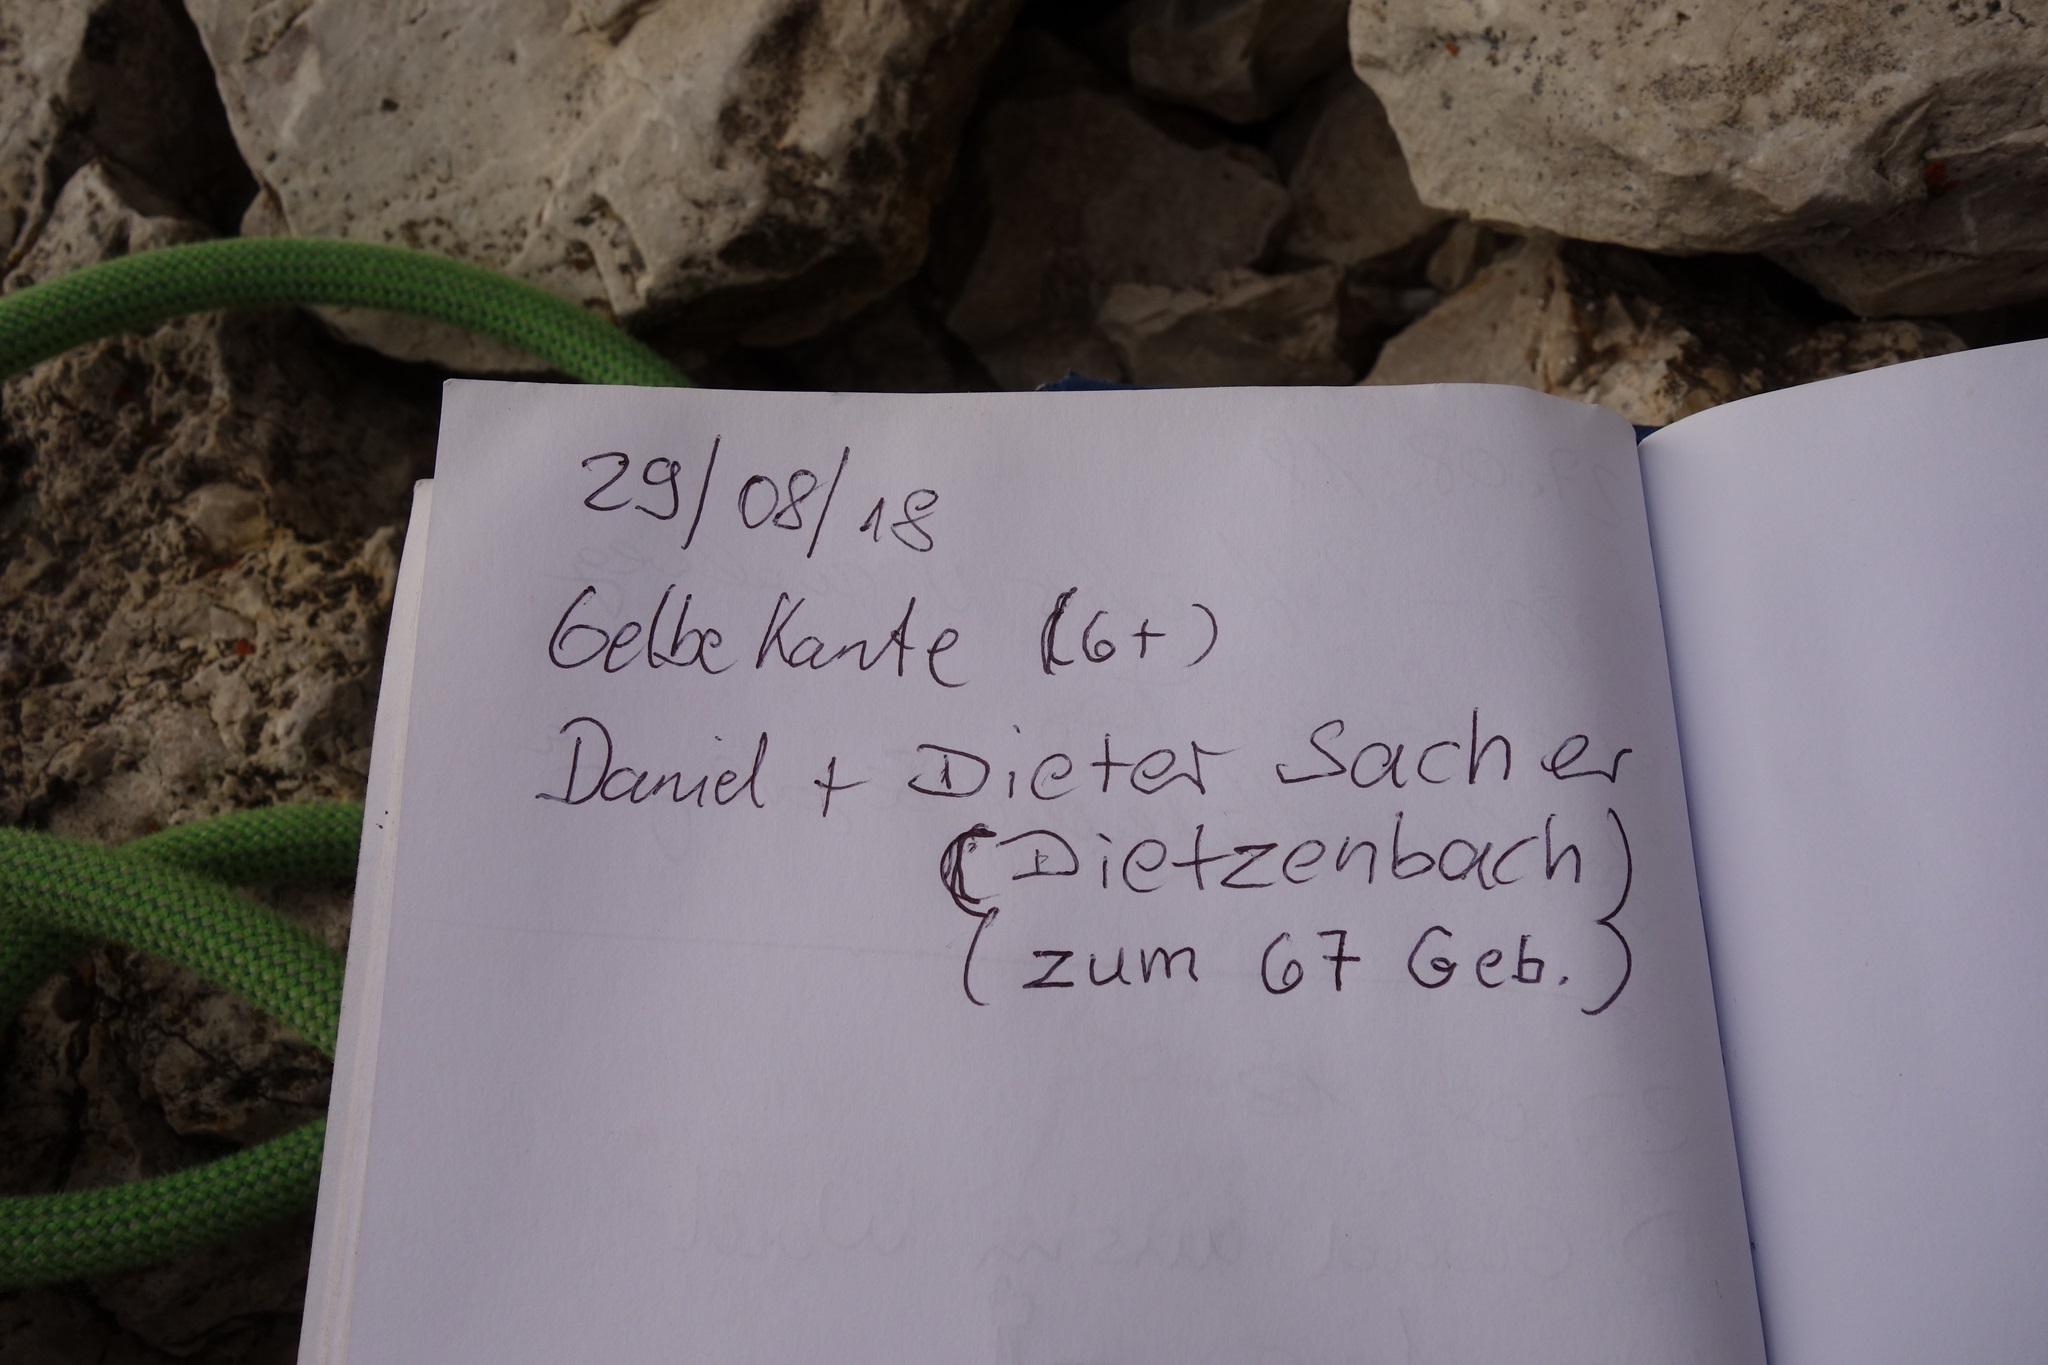 29/08/18
Gelbe Kante (6+)
Daniel + Dieter Sacher
(Dietzenbach)
(zum 67 Geb.)